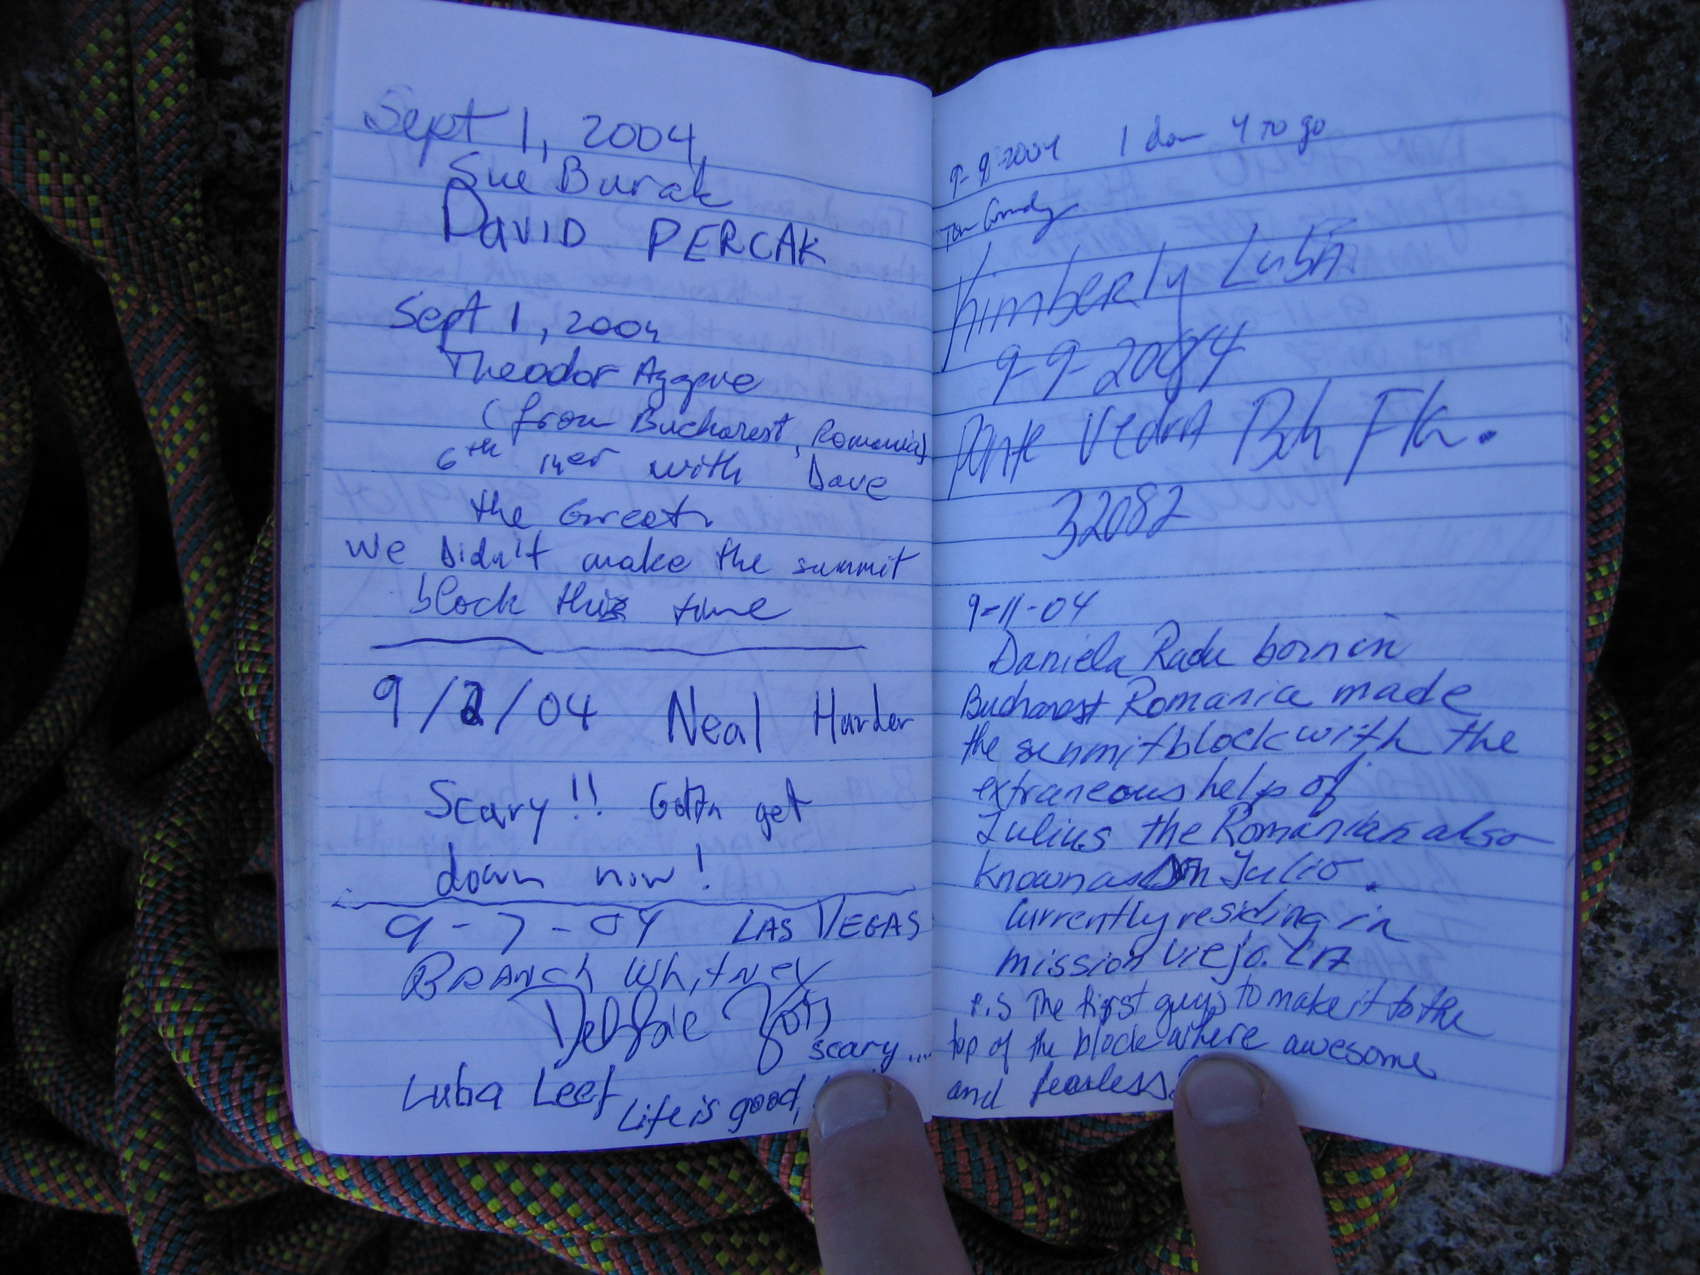 Sept 1, 2004,
Sue Burak
DAVID PERCAK
Sept 1, 2004
Theodor
(from Bucharest, Romania)
6th with Dave
the Great
We Didn't make the summit
block this time
9/2/04 Neal Harder
Scary!! Gotta get
down now!
9-7-04 LAS VEGAS
BRANCH WhitNEY
Debbie
scary....
Luba Leef Life is good,
9-9-2004 1 down 4 to go
Tom
Kimberly Lubin
9-9-2004
Ponte Vedra Bch Fla.
32082
9-11-04
Daniela Radu born in
Bucharest Romania made
the summit block with the
extraneous help of
Iulius the Romanian also
known as Julio.
Currently residing in
mission viejo. CA
P.S The first guys to make it to the
top of the block where awesome
and fearless